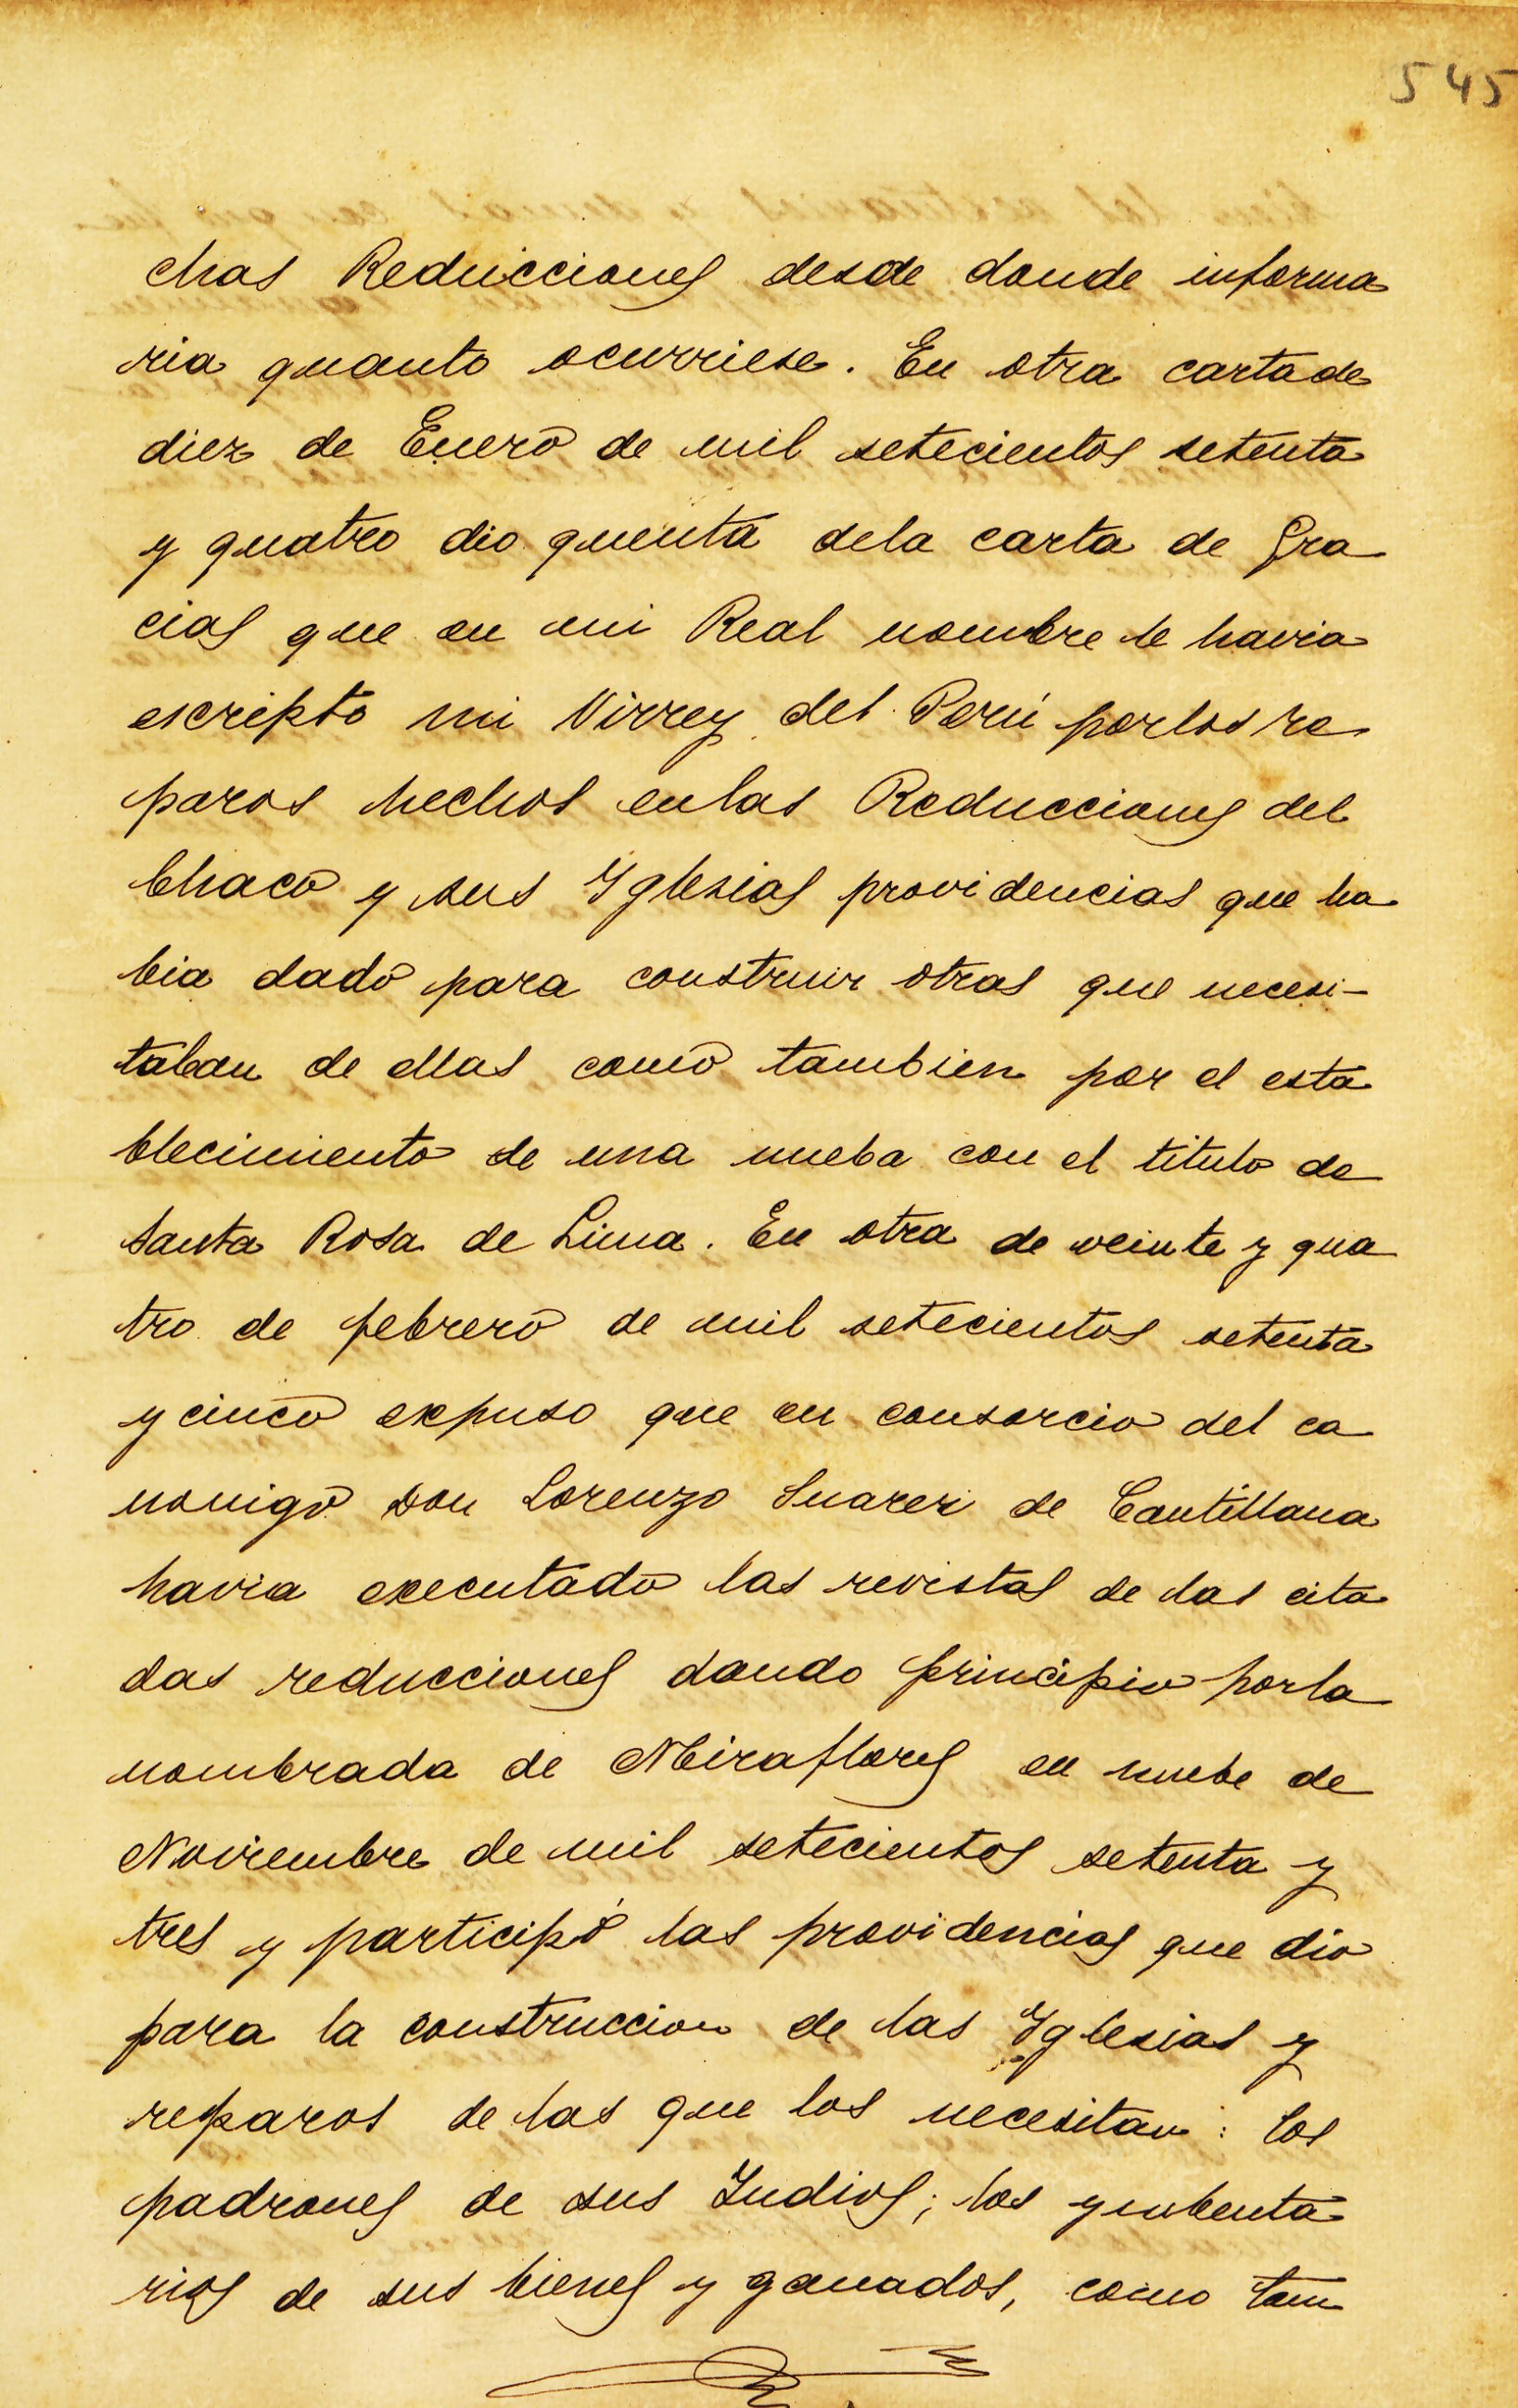 545
chas Reducciones desde donde informa
ria quanto ocurriese. En otra carta de
diez de Enero de mil setecientos setenta
y quatro dio quenta dela carta de Gra
cias que en mi Real nombre le havia
escripto mi Virrey del Perú por los re
paros hechos en las Reducciones del
Chaco y sus Yglesias providencias que ha
bia dado para construir otras que necesi-
taban de ellas como tambien por el esta
blecimiento de una nueba con el titulo de
Santa Rosa de Lima. En otra de veinte y qua
tro de febrero de mil setecientos setenta
y cinco expuso que en consorcio del ca
nonigo Don Lorenzo Suarez de Cantillana
havia executado las revistas de las cita
das reducciones dando principio por la
nombrada de Miraflores en nuebe de
Noviembre de mil setecientos setenta y
tres y participó las providencias que dio
para la construccion de las Yglesias y
reparos de las que los necesitan: los
padrones de sus Indios; los ynbenta
rios de sus bienes y ganados, como tam